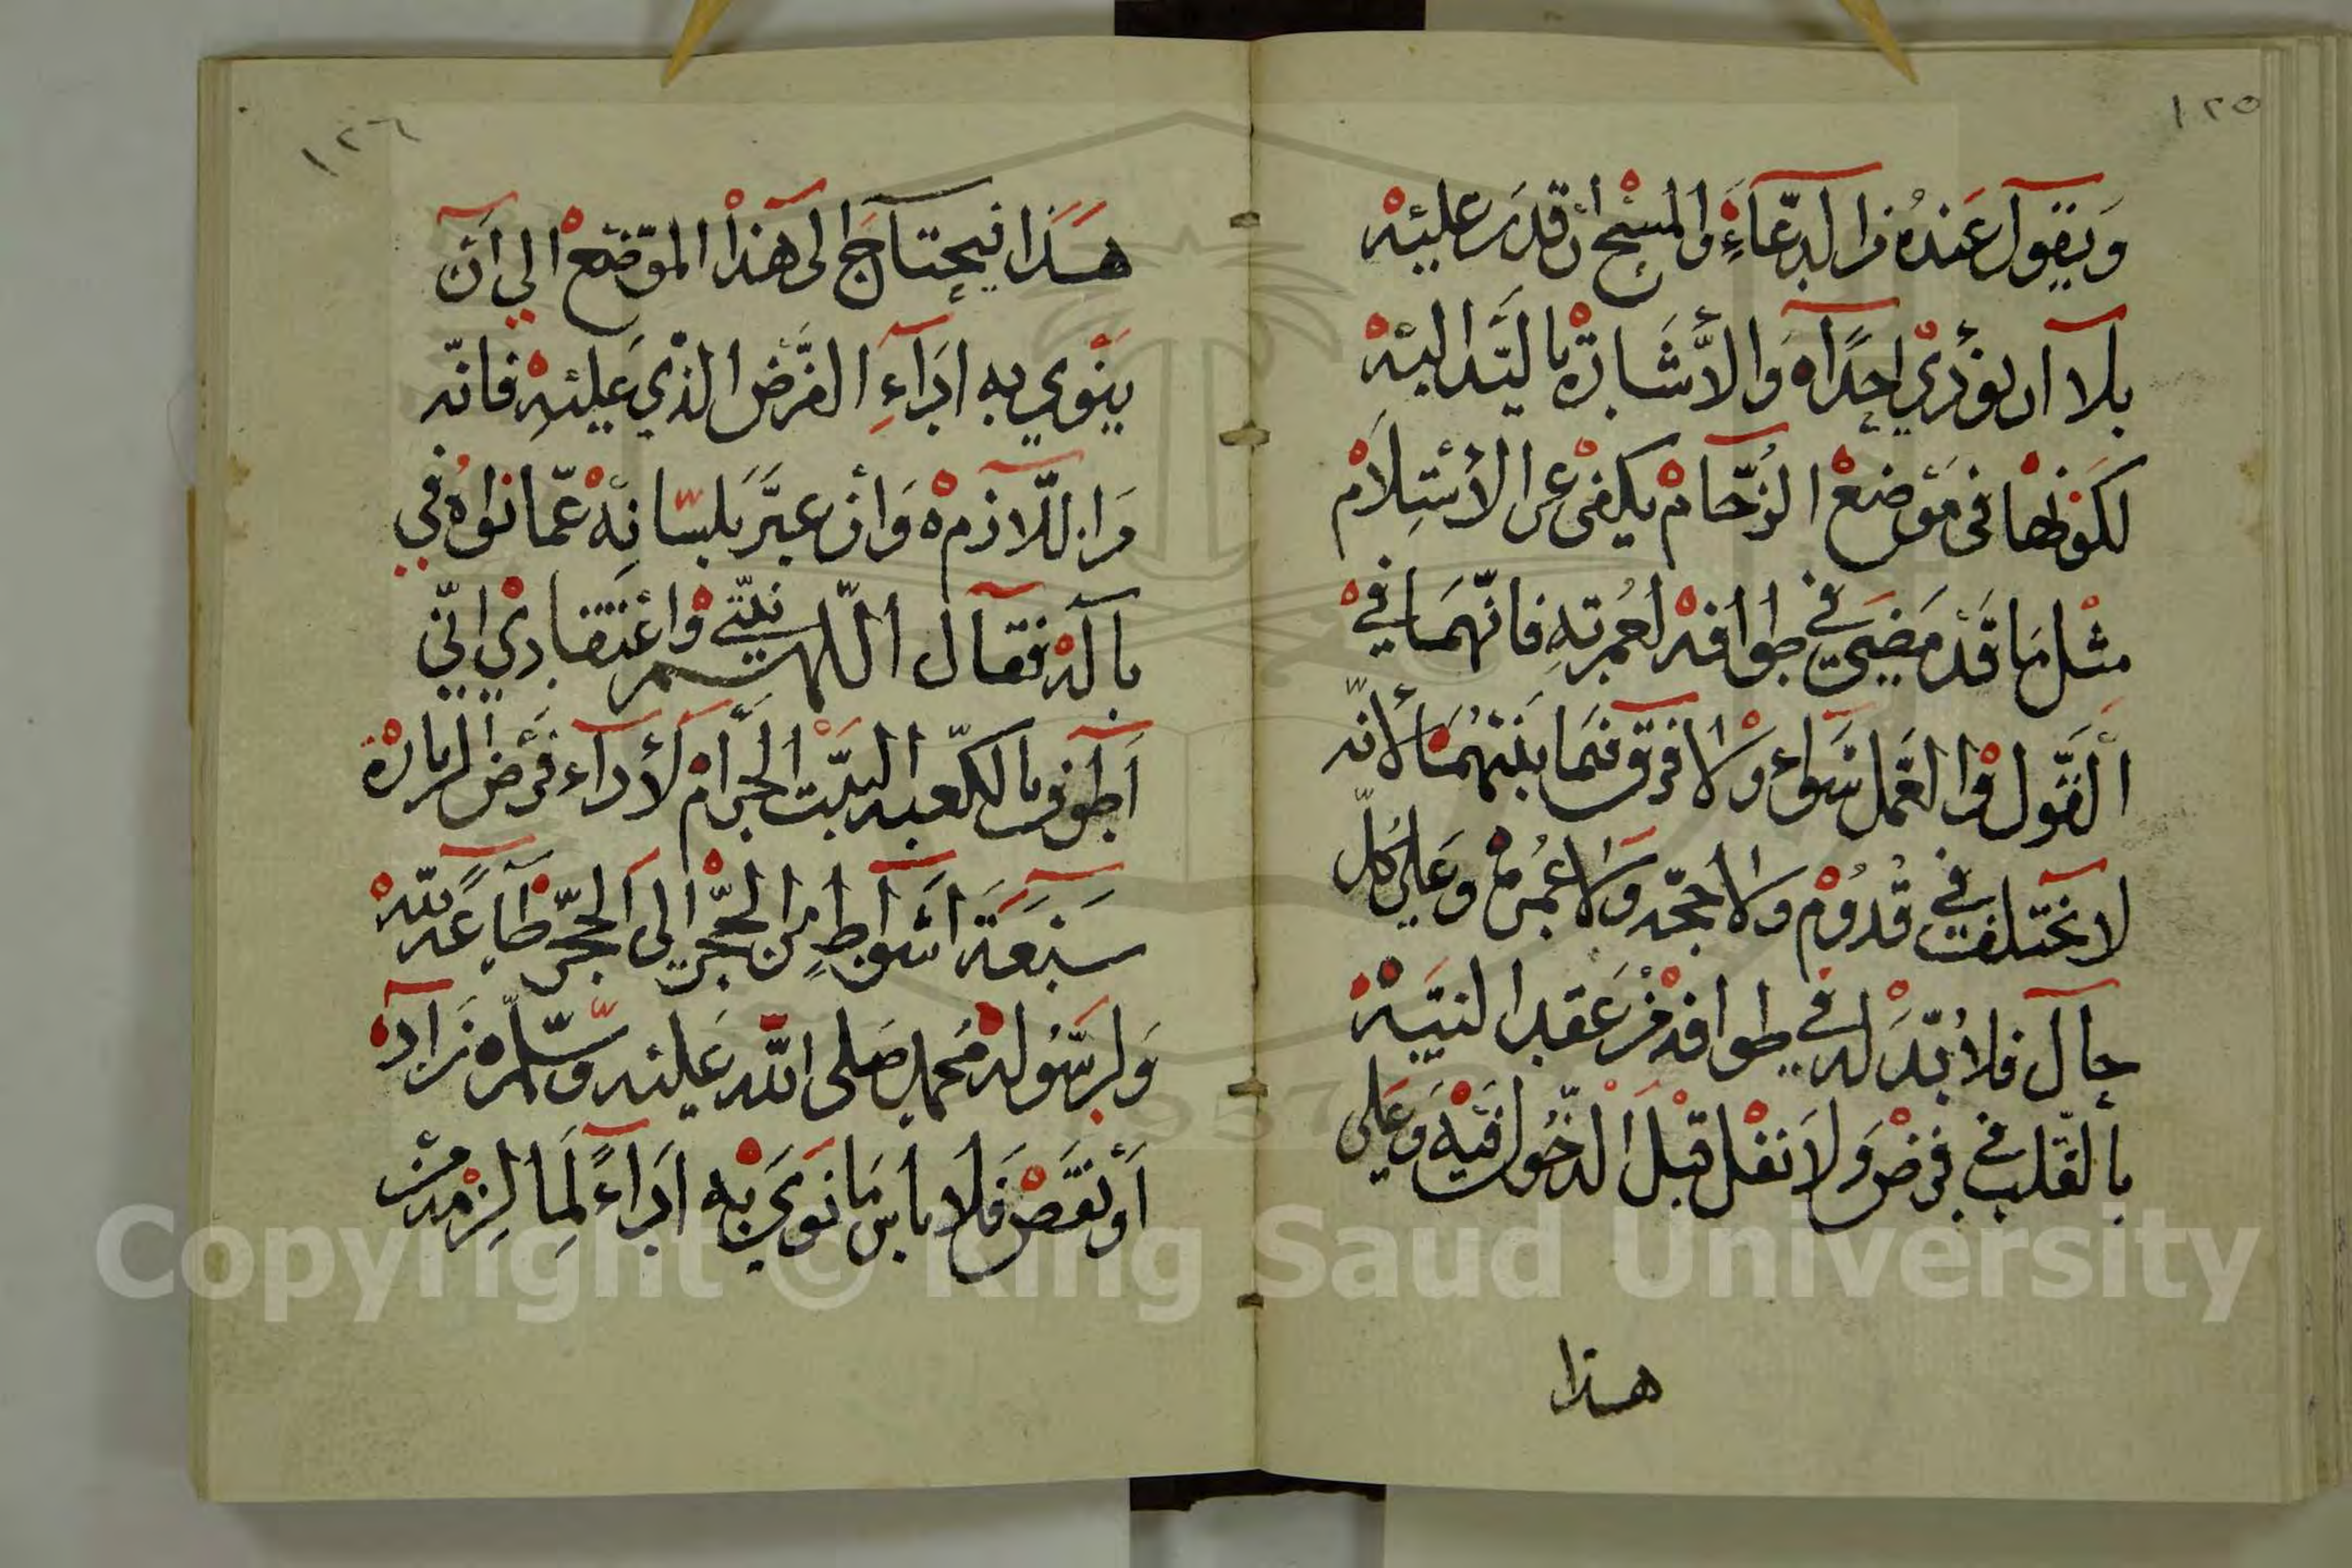 ١٢٥
وَيَقول عَندُه مَن الدّعَاءِ والمسْحِ ان قدَر عليْهْ
بلا ان يؤذي احِدًاه والاشَارة باليَد اليهْ
لكونها في موْضعْ الزّحامْ يكفي عن الاسْتِلامْ
مثْل مَا قَدْ مَضَى في طوافهْ لعُمرتهِ فانّهمَا في
القَول والعَمل سَواء ولا فرق فيمَا بينهُمَا لأنّه
لا يختلف في قدُومْ ولا حجّه ولا عُمرة وعَلى كلّ
حال فلا بُدّ له في طوافهْ من عَقد النيّة
بالقلب في فرض وَلا نفل قبل الدخُول فيْهْ وَعَلى
هذا
١٢٦
هَذا فيحتاج الى هذا الموْضعْ الي ان
ينْوي به ادَاءِ الفرْض الذي عَليْهْ فانّه
من اللّازمْ ه وَان عبَّر بلسَانِهْ عَمّا نواهُ في
بالهْ فقال اللهم نيّتي واعْتقادي انّي
اَطوف بالكعبه البيْت الحرامْ لأداء فرْض الزيارهْ
سَبعَة اشوَاطٍ من الحجَر الى الحجَر طاعَةً للّهْ
وَلرسُوله مُحمدٍ صَلى اللّه عَليْه وسَلّم ه زَادَ
أوْ نقَصَ فلا باسَ مَا نوَى به ادَاءً لِمَا لزمه من
Copyright © King Saud University
1957